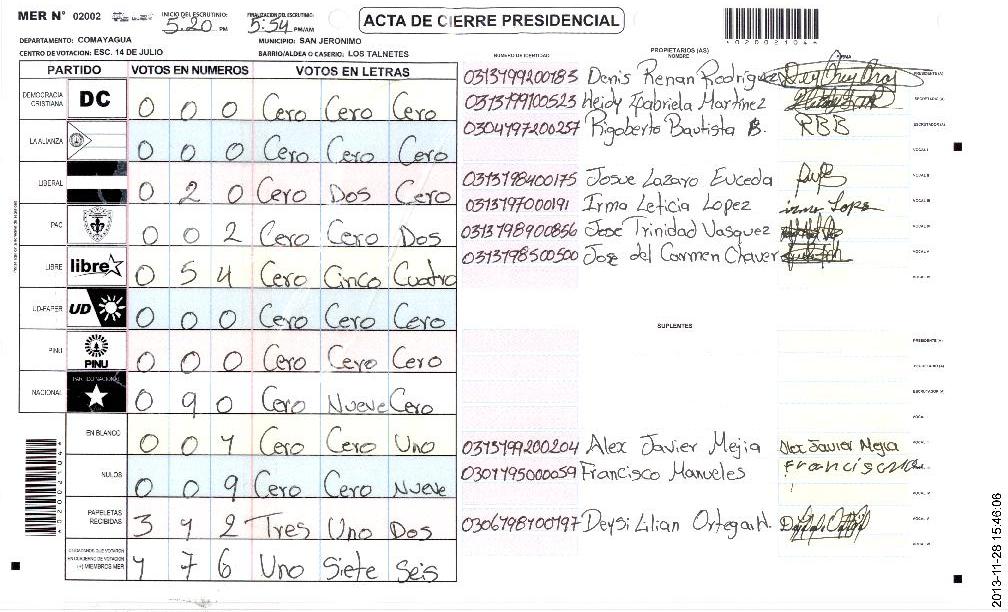 MER N° 02002
INICIO DEL ESCRUTINIO: 5:20 PM
FINALIZACION DEL ESCRUTINIO: 5:54 PM/AM
ACTA DE CIERRE PRESIDENCIAL
DEPARTAMENTO: COMAYAGUA
MUNICIPIO: SAN JERONIMO
CENTRO DE VOTACION: ESC. 14 DE JULIO
BARRIO/ALDEA O CASERIO: LOS TALNETES
PARTIDO VOTOS EN NUMEROS VOTOS EN LETRAS
DEMOCRACIA CRISTIANA DC 0 0 0 Cero Cero Cero
LA ALIANZA 0 0 0 Cero Cero Cero
LIBERAL 0 2 0 Cero Dos Cero
PAC 0 0 2 Cero Cero Dos
LIBRE libre 0 5 4 Cero Cinco Cuatro
UD-FAPER UD 0 0 0 Cero Cero Cero
PINU PINU 0 0 0 Cero Cero Cero
NACIONAL PARTIDO NACIONAL 0 9 0 Cero Nueve Cero
EN BLANCO 0 0 1 Cero Cero Uno
NULOS 0 0 9 Cero Cero Nueve
PAPELETAS RECIBIDAS 3 1 2 Tres Uno Dos
CIUDADANOS QUE VOTARON EN CUADERNO DE VOTACION (+) MIEMBROS MER 1 7 6 Uno Siete Seis
PROPIETARIOS (AS)
NUMERO DE IDENTIDAD NOMBRE FIRMA
0313199200183 Denis Renan Rodriguez PRESIDENTE(A)
0313199100523 Heidy Gabriela Martinez SECRETARIO(A)
0304197200257 Rigoberto Bautista B. RBB ESCRUTADOR(A)
VOCAL I
0313198400175 Josue Lazaro Euceda VOCAL II
0313197000191 Irma Leticia Lopez irma Lopez VOCAL III
0313198900856 Jose Trinidad Vasquez VOCAL IV
0313198500500 Jose del Carmen Chaver VOCAL V
VOCAL VI
SUPLENTES
PRESIDENTE (A)
SECRETARIO (A)
ESCRUTADOR (A)
VOCAL I
0313199200204 Alex Javier Mejia Alex Javier Mejia
0301195000059 Francisco Manueles Francisco
0306198100197 Deysi Lilian Ortega H. VOCAL V
VOCAL VI
2013-11-28 15:46:06